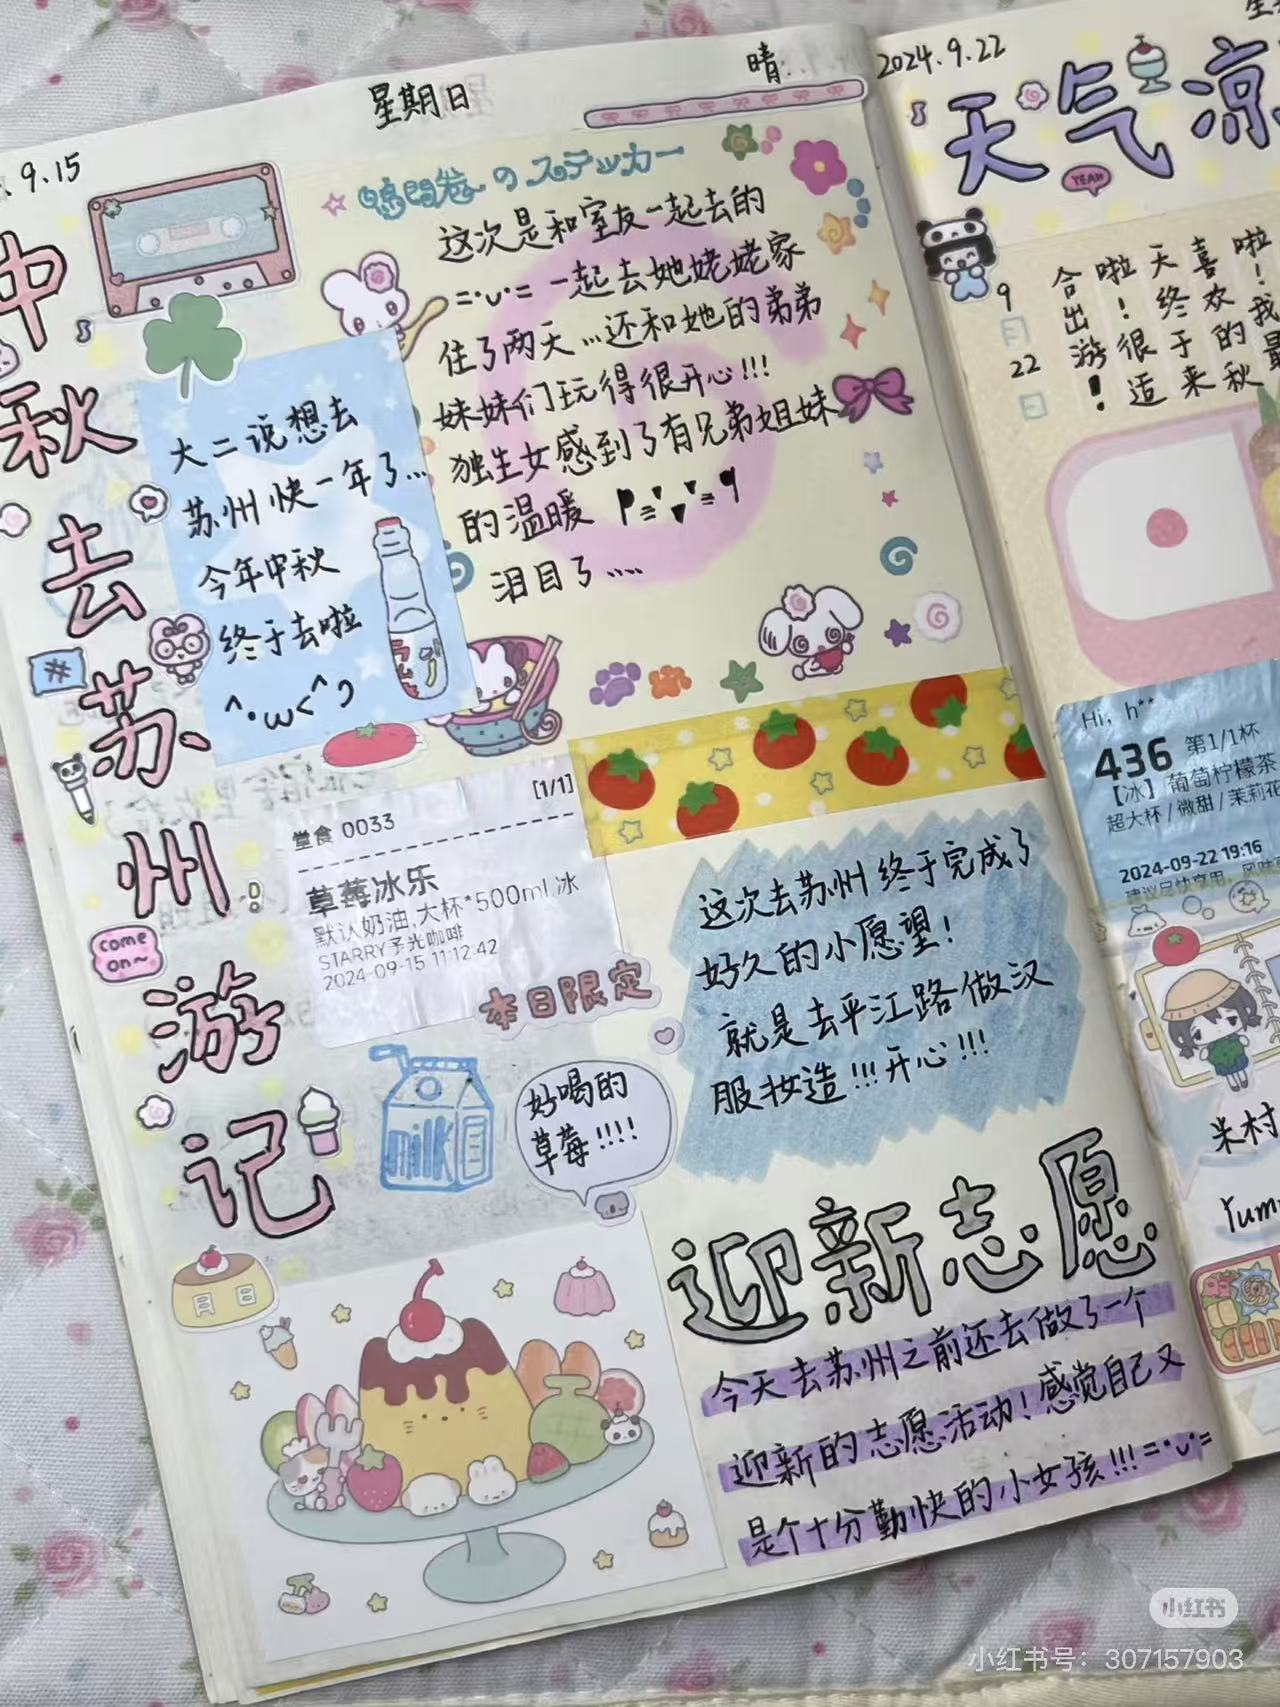 星期日
晴
.9.15
中秋去苏州游记
のステッカー
这次是和室友一起去的
=·ᴗ·= 一起去她姥姥家
住了两天...还和她的弟弟
妹妹们玩得很开心!!!
独生女感到了有兄弟姐妹
的温暖
泪目了.....
大二说想去
苏州快一年了...
今年中秋
终于去啦
^·ω<^
#
come on~
[1/1]
堂食 0033
草莓冰乐
默认奶油,大杯*500ml,冰
STARRY予光咖啡
2024-09-15 11:12:42
本日限定
milk
好喝的
草莓!!!!
月日
这次去苏州终于完成了
好久的小愿望!
就是去平江路做汉
服妆造!!!开心!!!
迎新志愿
今天去苏州之前还去做了一个
迎新的志愿活动!感觉自己又
是个十分勤快的小女孩!!!=·ᴗ·=
2024.9.22
天气凉
YEAH
9
月
22
日
啦!我最
喜欢的秋
天终于来
啦!很适
合出游!
Hi, h**
436 第1/1杯
【冰】葡萄柠檬茶
超大杯/微甜/茉莉花
2024-09-22 19:16
米村
Yum
小红书
小红书号：307157903